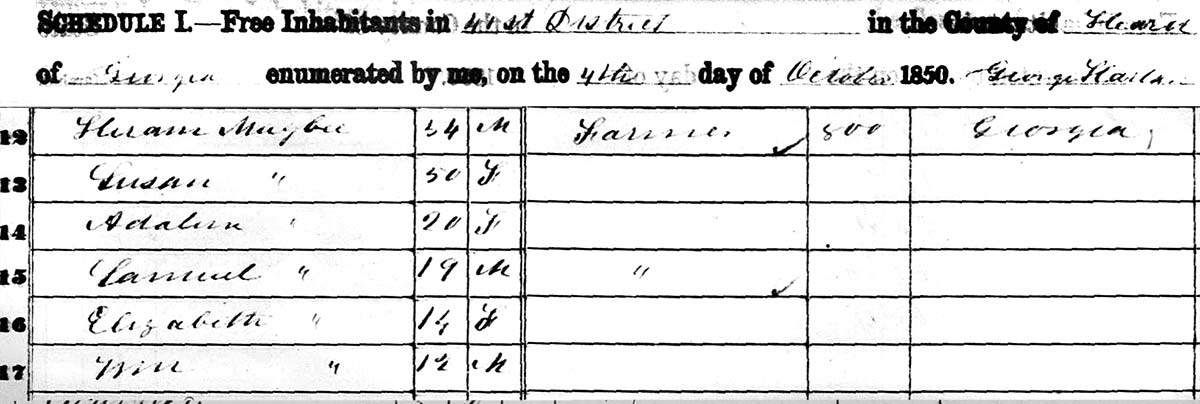 SCHEDULE I.—Free Inhabitants in 41st District in the County of Heard
of Georgia enumerated by me, on the 4th day of October 1850. George
12 Hiram Maybee 54 M Farmer 800 Georgia
13 Susan " 50 F
14 Adaline " 20 F
15 Samuel " 19 M "
16 Elizabeth " 14 F
17 Wm " 12 M